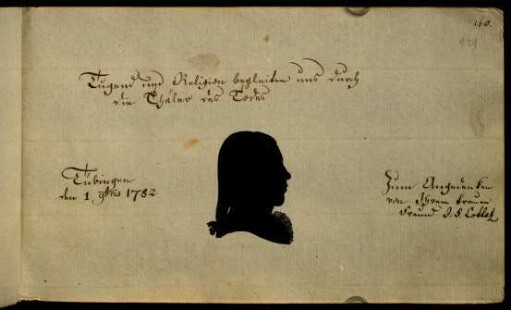 160.
Tugend und Religion begleiten uns durch
die Thäler des Todes
Tübingen
den 1. 9bris 1782
Zum Angedenken
von Ihrem treuen
Freund J. S.